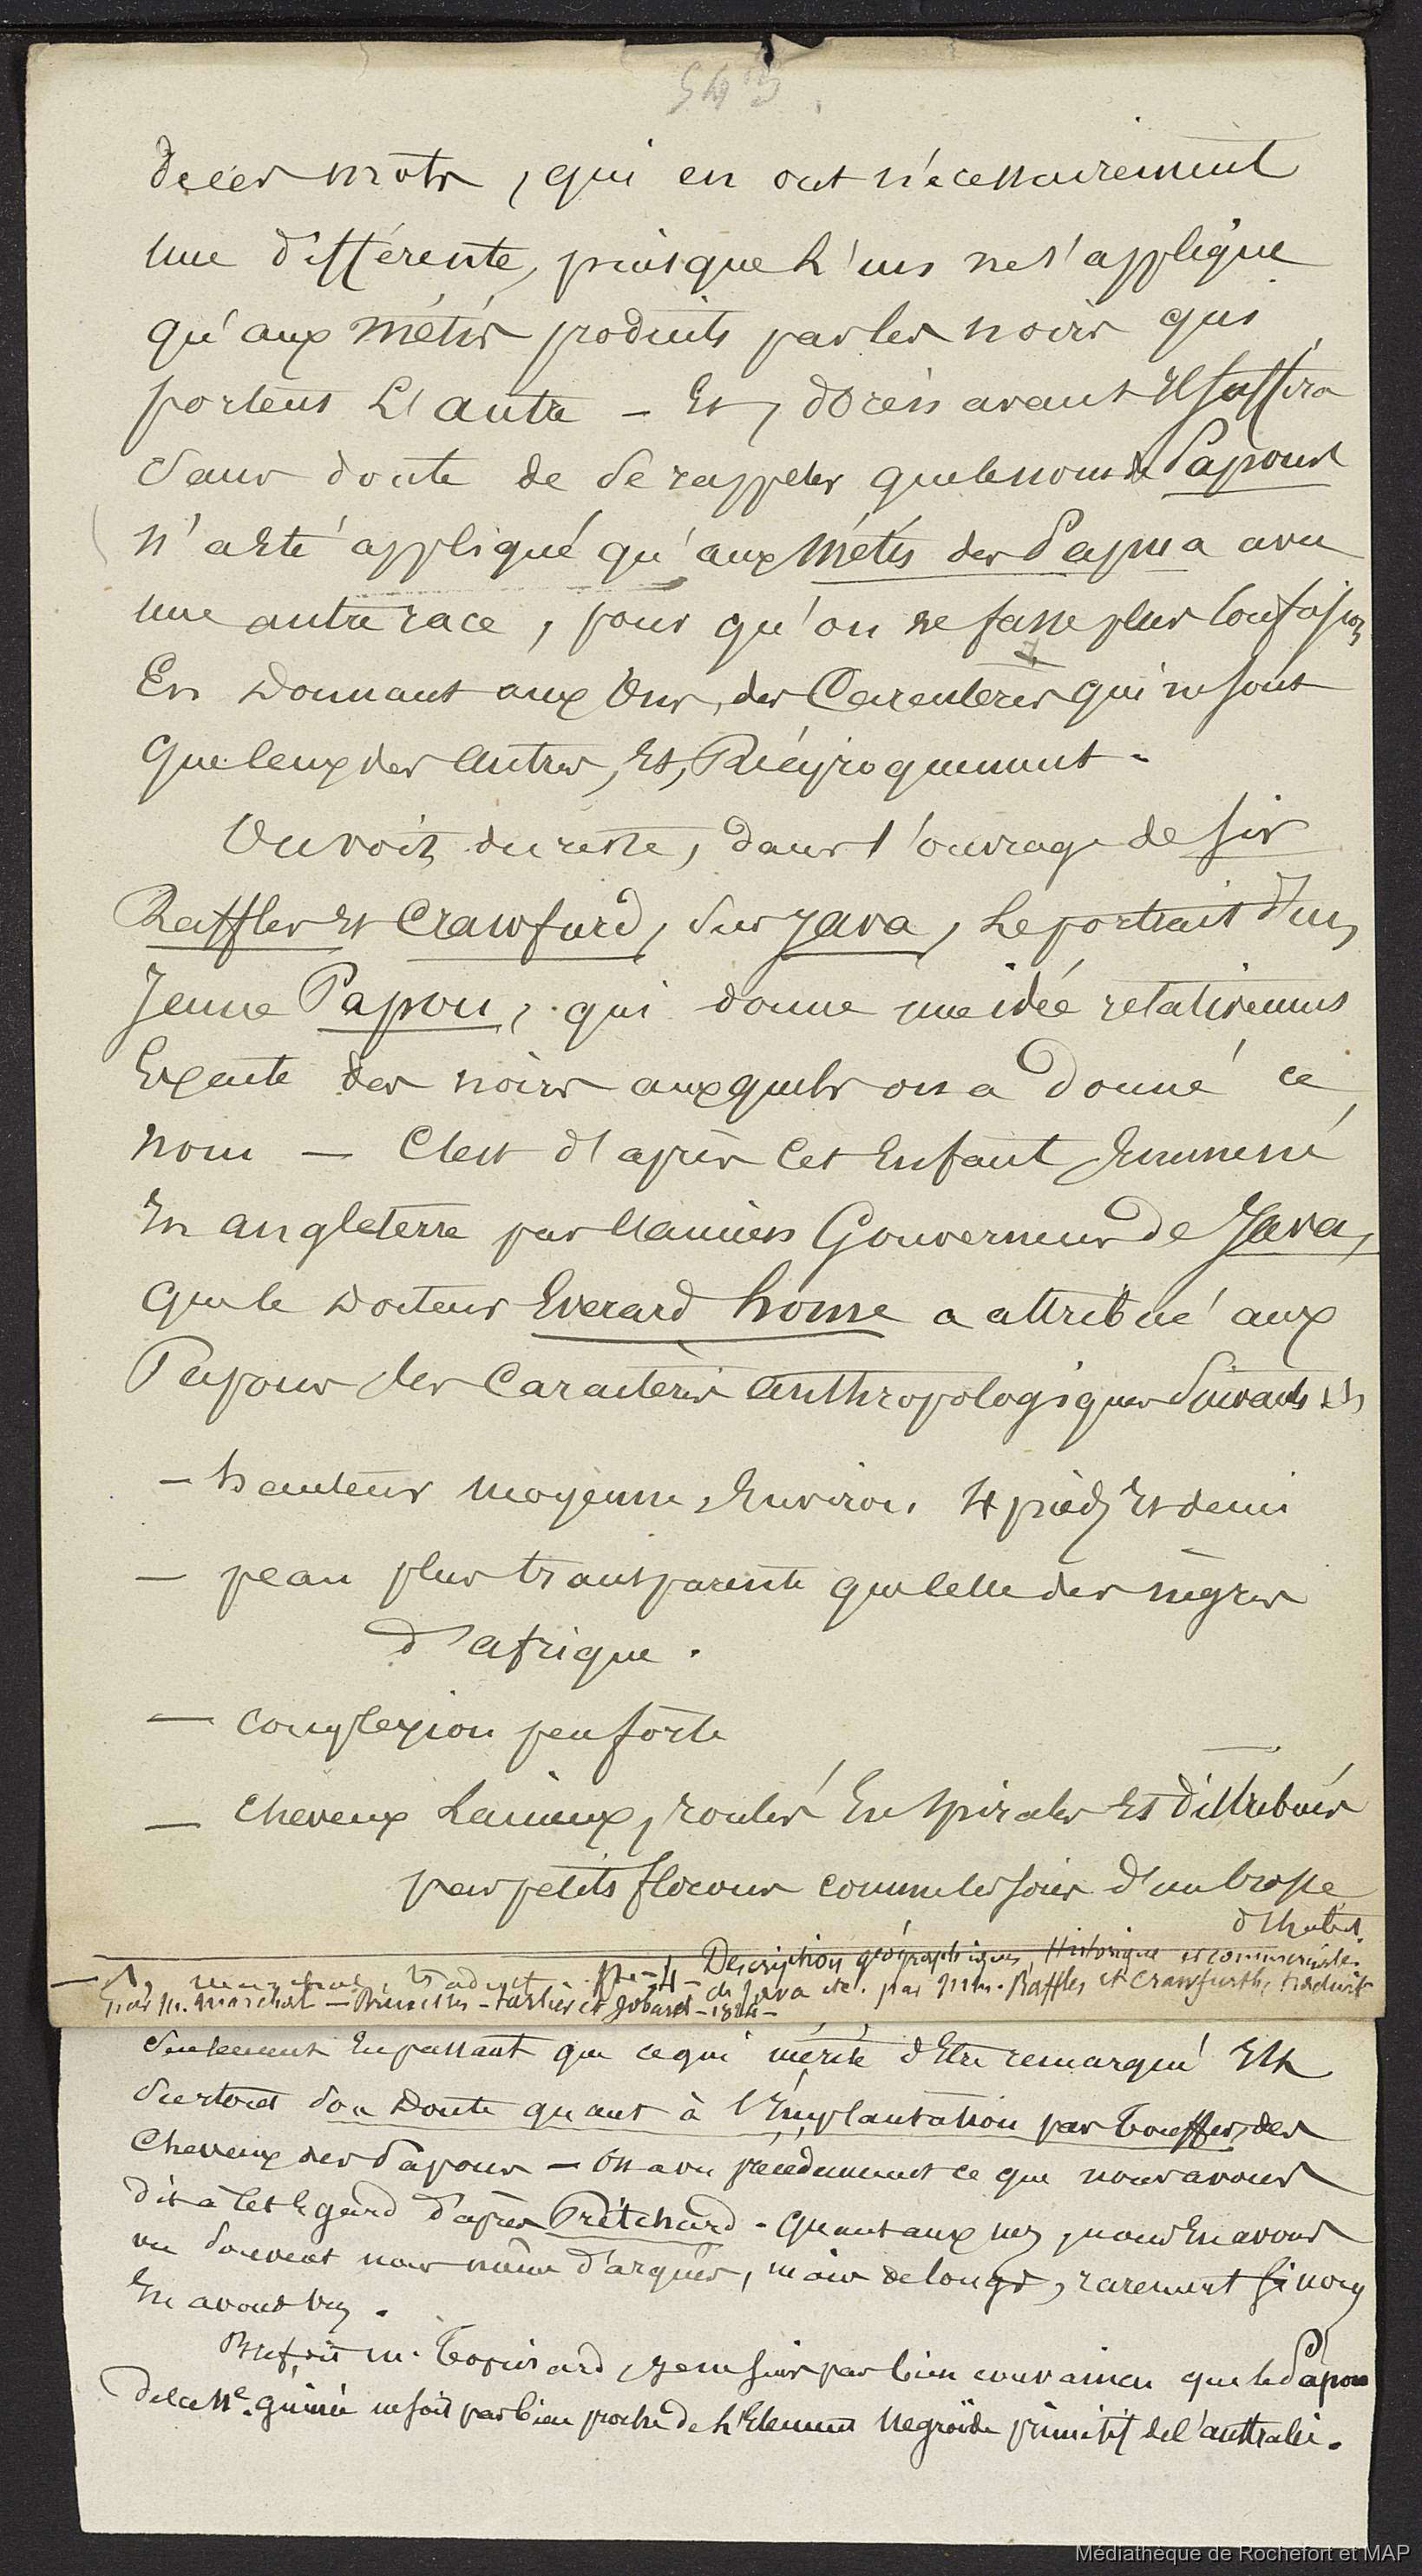 543.
de ces mots, qui en ont nécessairement
une différente, puisque l'un ne s'applique
qu'aux métis produits par les noirs qui
portent l'autre - Et, dorénavant il suffira
sans doute de se rappeler que le nom de Papous
n'a été appliqué qu'aux métis des Papua avec
une autre race, pour qu'on ne fasse plus confusion
En donnant aux uns, des Caractères qui ne sont
que ceux des autres, et, Réciproquement.
On voit, du reste, dans l'ouvrage de sir
Raffles et Crawfurd, sur Java, le portrait d'un
Jeune Papou, qui donne une idée relativement
Exacte des noirs auxquels on a donné ce
nom — C'est d'après cet Enfant Emmené
En angleterre par l'ancien Gouverneur de Java,
que le docteur Everard home a attribué aux
Papous les Caractères anthropologiques suivants
- hauteur moyenne, Environ 4 pieds Et demi
- peau plus transparente que celle des nègres
d'afrique.
- complexion peu forte
- cheveux Laineux, roulés En spirales Et distribués
par petits flocons comme les soies d'une brosse
d'habit.
Description géographique, Historique et commerciale
de Java etc. par MM. Raffles et Crawfurth, traduit
par M. Marchal - Bruxelles - Tarlier et Jobard - 1824 -
seulement En passant que ce qui mérite d'Etre remarqué Est
surtout son doute quant à l'Implantation par touffes, des
Cheveux des Papous - On a vu précédemment ce que nous avons
dit à cet Egard d'après Pritchard. Quant aux nez, nous En avons
vu souvent nous même d'arqués, mais de longs, rarement si nous
En avons vu.
Bref dit M. Topinard, je ne suis pas bien convaincu que le Papou
de la Nle. guinée ne soit pas bien proche de l'Element Negroïde primitif de l'australie.
Médiathèque de Rochefort et MAP